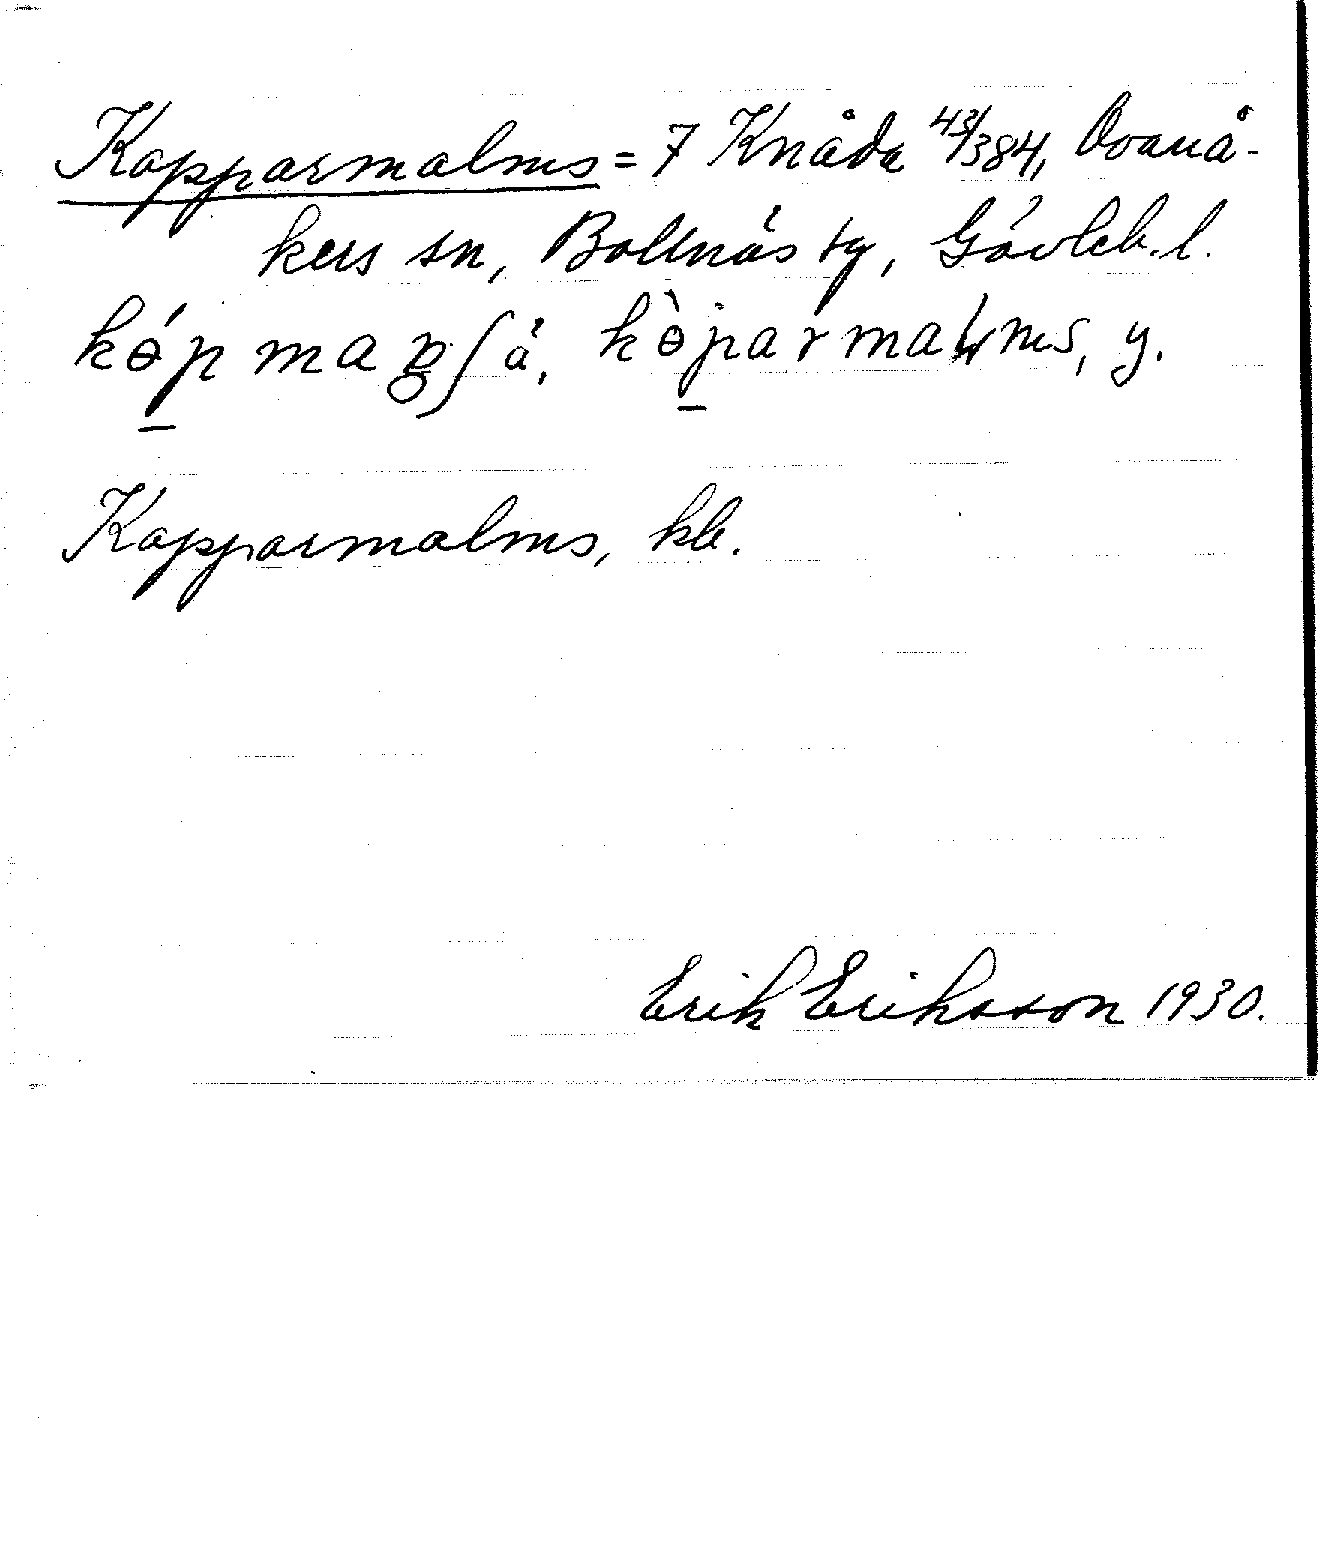 Kopparmalms = 7 Knåda 43/384, Ovanå-
kers sn, Bollnäs tg, Gävleb. l.
kòparmalms, y.
Kopparmalms, kb.
Erik Eriksson 1930.